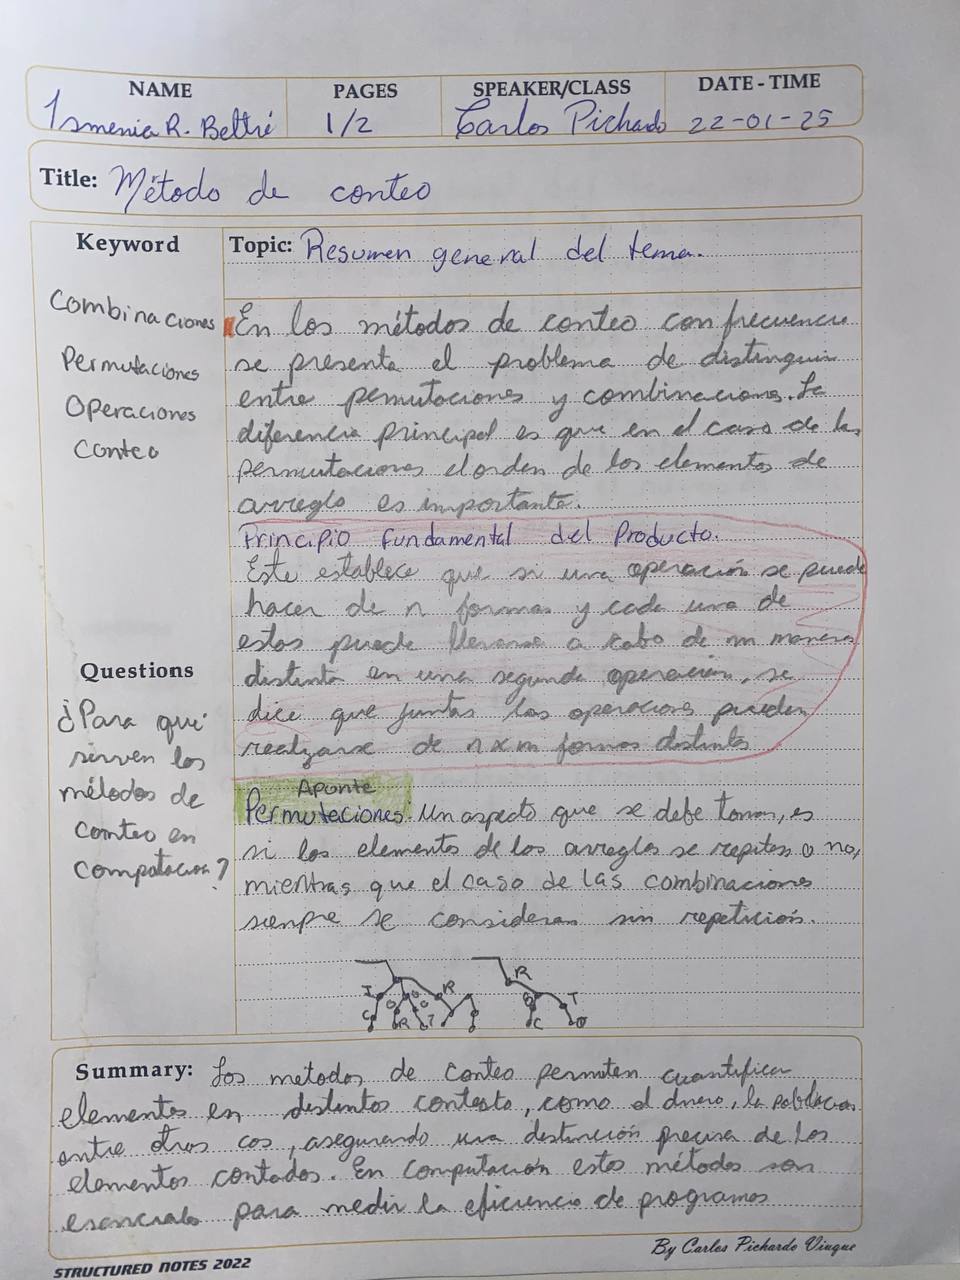 NAME
PAGES
SPEAKER/CLASS
DATE - TIME
Ismenia R. Beltré
1/2
Carlos Pichardo
22-01-25
Title: Método de conteo
Keyword
Combinaciones
Permutaciones
Operaciones
Conteo
Questions
¿Para qué
sirven los
métodos de
conteo en
computación?
Topic: Resumen general del tema.
En los métodos de conteo con frecuencia
se presenta el problema de distinguir
entre permutaciones y combinaciones. La
diferencia principal es que en el caso de las
permutaciones el orden de los elementos de
arreglo es importante.
Principio fundamental del Producto.
Este establece que si una operación se puede
hacer de n formas y cada una de
estas puede llevarse a cabo de m manera
distinta en una segunda operación, se
dice que juntas las operaciones pueden
realizarse de n x m formas distintas
Aponte
Permutaciones: Un aspecto que se debe tomar, es
si los elementos de los arreglos se repiten o no,
mientras que el caso de las combinaciones
siempre se consideran sin repetición.
R
I
R
C
O
R
T
T
C
O
Summary: Los metodos de conteo permiten cuantificar
elementos en distintos contexto, como el dinero, la población
entre otros cos, asegurando una distinción precisa de los
elementos contados. En computación estos métodos son
esenciales para medir la eficiencia de programas
By Carlos Pichardo Viuque
STRUCTURED NOTES 2022